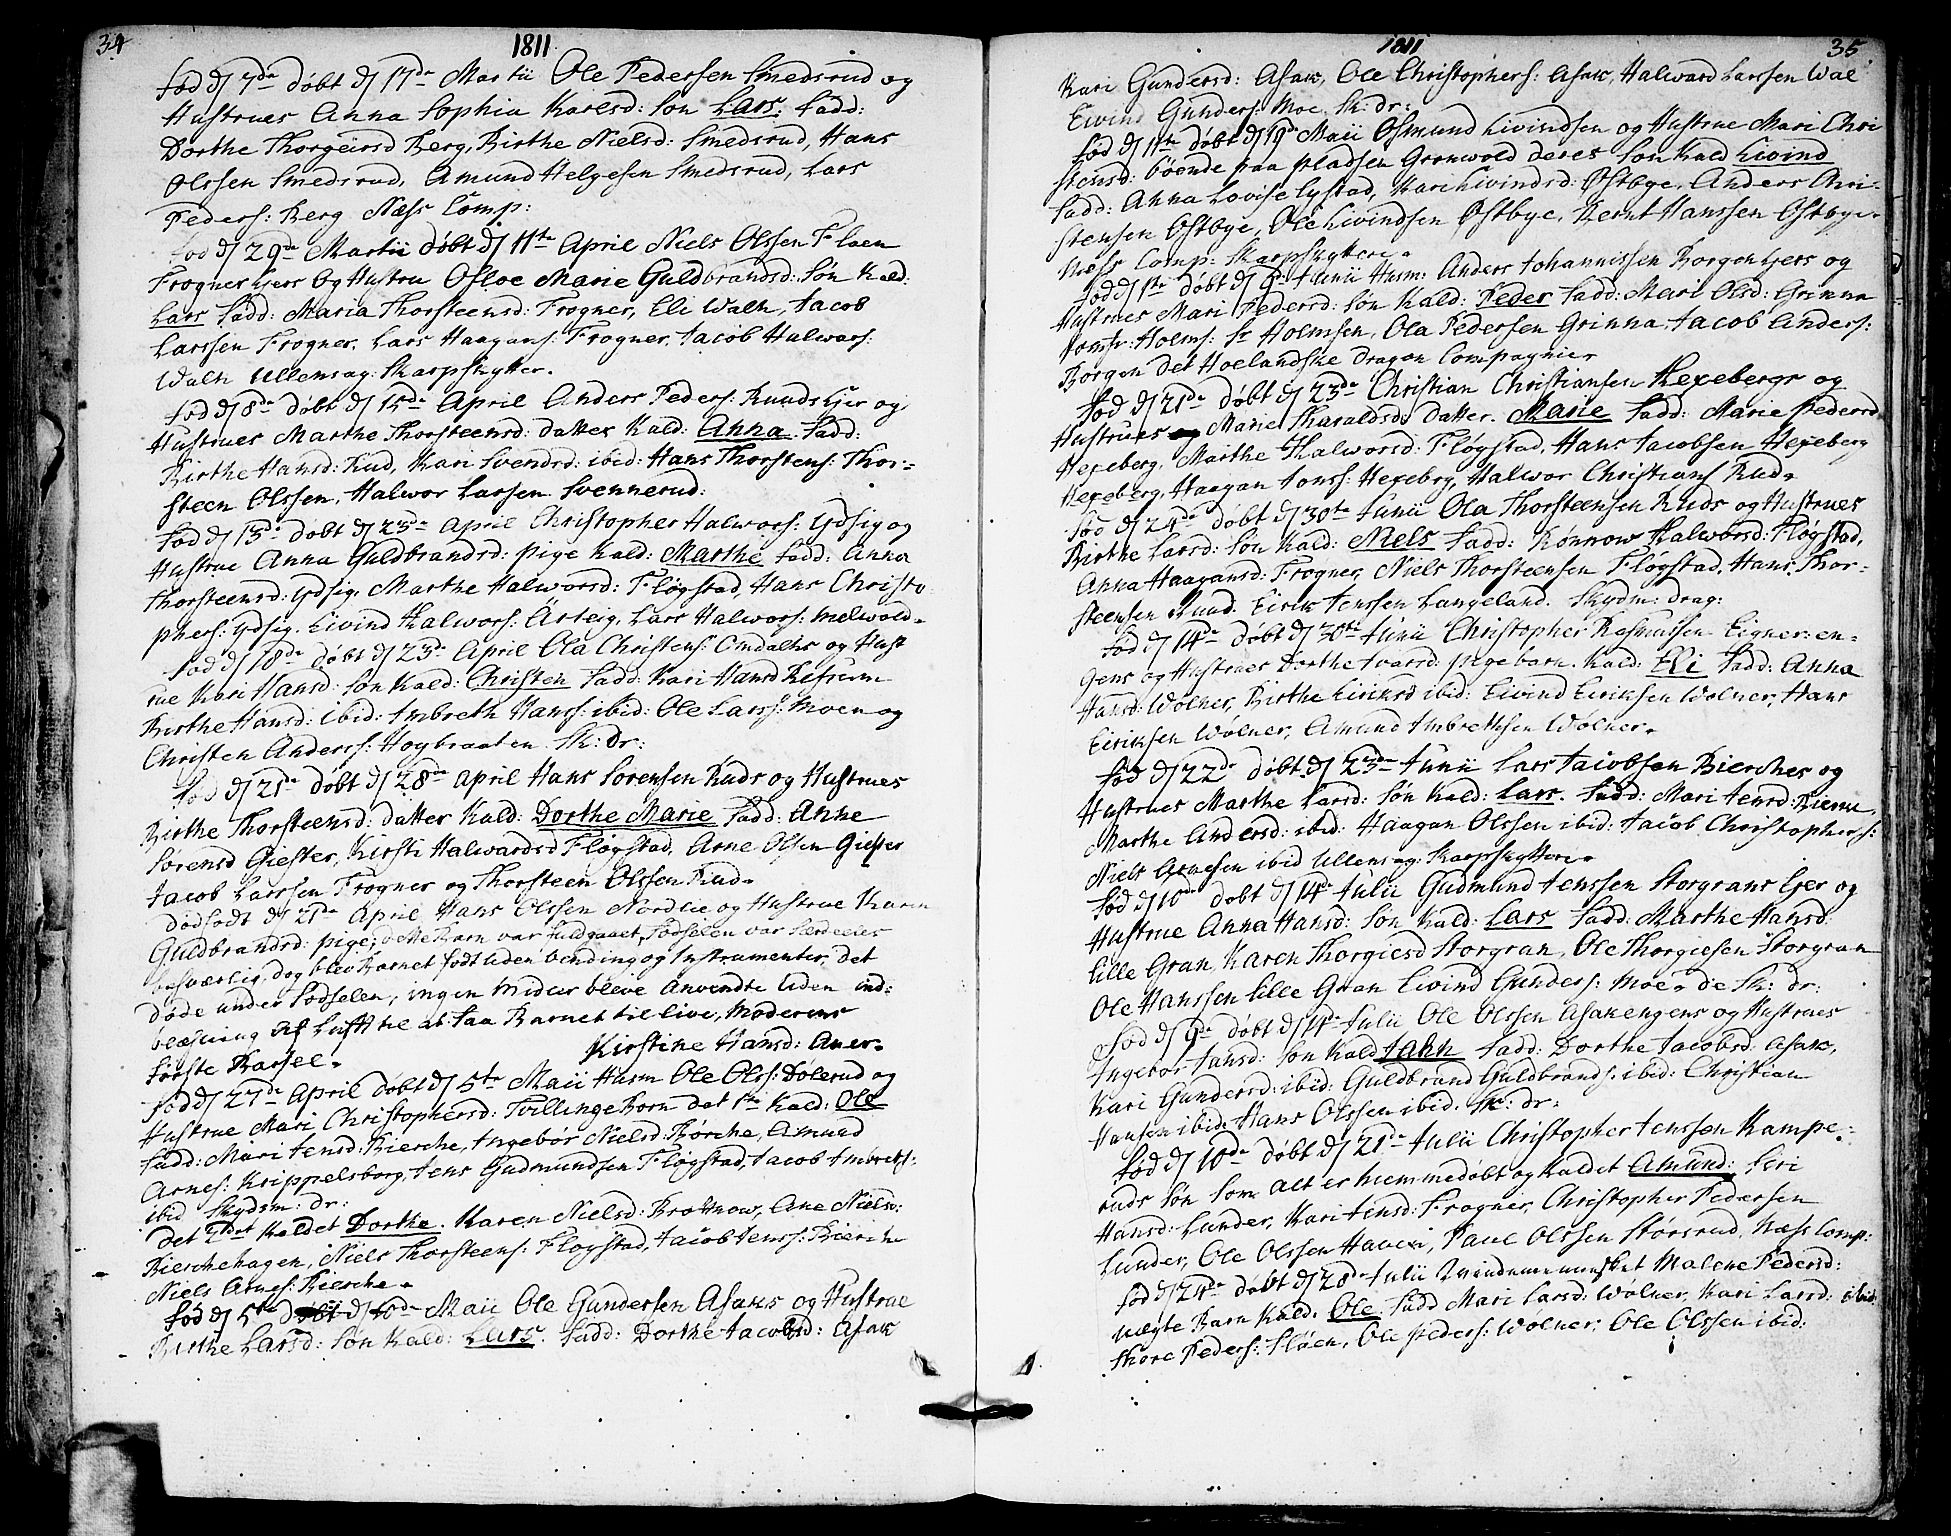 34
1811
fød d/ 7de døbt d/ 17de Martii Ole Pedersen Smedsrud og
Hustrues Anna Sophia Karlsd: Søn Lars. Fadd:
Dorthe Thorgeirsd Berg, Birthe Nielsd: Smedsrud, Hans
Olssen Smedsrud, Amund Helgesen Smedsrud, Lars
Peders: Berg Næss Comp:
fød d/ 29de Martii døbt d/ 11te April Niels Olssen Floen
Frogner Ejers Og Hustru Osloe Marie Guldbrandsd: Søn kald:
Lars Fadd: Maria Thorsteensd: Frogner, Eli Walth, Jacob
Larssen Frogner. Lars Haagans: Frogner, Jacob Halwors:
Walth Ullensag: Skarpskytter.
fød d/ 8de døbt d/ 15de April Anders Peders: Ruuds Ejer og
Hustrues Marthe Thorsteensd: datter kald: Anna. Fadd:
Birthe Hansd: Rud, Kari Svendsd: ibid: Hans Thorstens: Thor-
steen Olssen, Halwor Larsen Svennerud:
fød d/ 13de døbt d/ 23de April Christopher Halwors: Ydsig og
Hustrue Anna Guldbrandsd: pige kald: Marthe Fadd: Anna
Thorsteensd: Ydsig, Marthe Halworsd: Fløgstad, Hans Christo
phers: Ydsig. Eivind Halwors: Arteig, Lars Halwors: Melwold.
fød d/ 18de døbt d/ 23de April Ola Christens: Omdahls og Hust
rue Kari Hansd: Søn kald: Christen Fadd: Kari Hansd Refsum
Birthe Hansd: ibid: Imbreth Hans: ibid: Ole Lars: Moen og
Christen Anders: Høgbraaten Sk: Dr:
fød d/ 21de døbt d/ 28de April Hans Sørensen Ruds og Hustrues
Birthe Thorsteensd: datter kald: Dorthe Marie Fadd: Anne
Sørensd Giester, Kirsti Halwardsd Fløgstad, Arne Olsen Giester
Jacob Larssen Frogner og Thorsteen Olssen Rud.
dødfødt d/ 21de April Hans Olssen Nordlie og Hustrue Karen
Guldbrandsd: pige; dette Barn var fuldgaaet, Fødselen var særdeeles
besværlig, dog blev Barnet født uden vending og Instrumenter, det
døde under Fødselen, ingen Midler bleve anvendte uden ind-
blæsning af Luft til at faa Barnet til live, Moderens
første Barsel. Kirstine Hansd: Aner.
fød d/ 27de April døbt d/ 5te Maii Husm Ole Ols: Dolerud og
Hustrue Mari Christophersd: Tvillinge Børn det 1ste kald: Ole
Fadd: Mari Jensd: Bierche, Ingebor Nielsd: Børche, Amund
Arnes: Krippelsborg, Jens Gudmundsen Fløgstad, Jacob Imbreths:
ibid Skydsm: dr:
det 2det kaldet Dorthe. Karen Nielsd: Brotnow, Ane Nielsd:
Bierchehagen, Niels Thorsteens: Fløgstad, Jacob Jens: Bierche
Niels Arnes: Bierche.
fød d/ 5te Maii Ole Gundersen Asaks og Hustrue
Birthe Larsd: Søn kald: Lars. Fadd: Dorthe Jacobsd: Asak
1811
35
Kari Gundersd: Asak, Ole Christophers: Asak, Halward Larssen Wal
Eivind Gunders: Moe Sk: dr:
fød d/ 11te døbt d/ 19de Maii Osmund Eivindsen og Hustrue Mari Chri
stensd: boende paa pladsen Grønwold deres Søn kald Eivind
Fadd: Anna Lovise Lystad, Kari Eivindsd: Østbye, Anders Chri-
stensen Østbye, Ole Eivindsen Østbye, Bernt Hanssen Østbye.
Næss Comp: Skarpskyttere.
fød d/ 1ste døbt d/ 9de Junii Husm: Anders Johannissen Borgen Ejers og
Hustrues Mari Pedersd: Søn kald: Peder Fadd: Mari Olsd: Grinna
Jomfr: Holms: Sr Holmsen, Ola Pedersen Grinna, Jacob Anders:
Borgen det Hoelandske Dragon Compagnie.
fød d/ 21de døbt d/ 23de Christian Christiansen Hexebergs og
Hustrues Marie Haraldsd: datter. Marie Fadd: Marie Pedersd
Hexeberg, Marthe Halworsd: Fløgstad, Hans Jacobsen Hexeberg
Hexeberg, Haagan Jons: Hexebrg, Halwor Christians Rud.
fød d/ 24de døbt d/ 30te Junii Ola Thorsteensen Ruds og Hustrues
Birthe Larsd: Søn kald: Niels Fadd: Rønnow Halworsd: Fløgstad,
Anna Haagansd: Frogner, Niels Thorsteensen Fløgstad, Hans Thor-
steensen Ruud. Eirik Jenssen Langeland. Skydm: drag:
fød d/ 14de døbt d/ 30te Junii Christopher Rasmusen Eigner: en-
gens og Hustrues Dorthe Ivarsd: pigebarn. kald: Eli Fadd: Anna
Hansd: Wølner, Birthe Eiriksd ibid: Eivind Eiriksen Wølner, Hans
Eiriksen Wølner, Amund Imbrethsen Wølner.
fød d/ 22de døbt d/ 23de Junii Lars Jacobsen Bierches og
Hustrues Marthe Larsd: Søn kald: Lars. Fadd: Mari Jensd: Biercke,
Marthe Andersd: ibid: Haagan Olssen ibid: Jacob Christophers:
Niels Arnesen ibid Ullensag: Skarpskyttere.
fød d/ 10de døbt d/ 14de Julii Gudmund Jenssen Storgrans Ejer og
Hustrue Anna Hansd: Søn kald: Lars Fadd: Marthe Hansd:
Lille Gran, Karen Thorgiesd Storgran, Ole Thorgiesen Storgran
Ole Hanssen Lille Gran Eivind Gunders: Moe. de Sk: dr:
fød d/ 9de døbt d/ 14de Julii Ole Olssen Asakengens og Hustrues
Ingebor Jansd: Søn kald Jahn Fadd: Dorthe Jacobsd: Asak,
Kari Gundersd: ibid: Guldbrand Guldbrands: ibid: Christian
Hansen ibid: Hans Olssen ibid. Sk: dr:
fød d/ 10de døbt d/ 21de Julii Christopher Jenssen Kampe-
ruds Søn som alt er hiemmedøbt og kaldet Amund: Siri
Hansd: Lunder, Kari Jensd: Frogner, Christopher Pedersen
Lunder, Ole Olssen Haueri, Paul Olssen Størsrud, Næss Comp:
fød d/ 24de døbt d/ 28de Julii Malene Pedersd:
uægte Barn kald: Ole Fadd Mari Larsd: Wølner, Kari Larsd: ibid
Thore Peders: Fløen, Ole Peders: Wølner, Ole Olssen ibid: